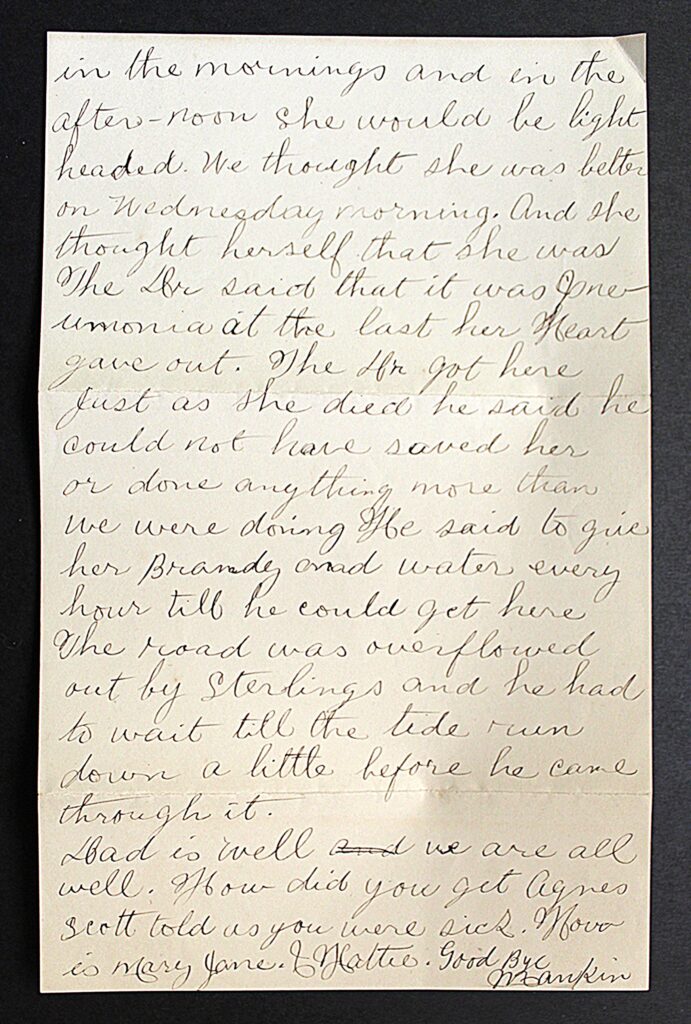 in the mornings and in the
after-noon she would be light
headed. We thought she was better
on Wednesday morning. And she
thought herself that she was
The Dr said that it was Pne-
umonia at the last her Heart
gave out. The Dr got here
Just as she died he said he
could not have saved her
or done anything more than
we were doing He said to give
her Brandy and water every
hour till he could get here
The road was overflowed
out by Sterlings and he had
to wait till the tide run
down a little before he came
through it.
Dad is well and we are all
well. How did you get Agnes
Scott told us you were sick. How
is Mary Jane. & Hattie. Good Bye
Mankin